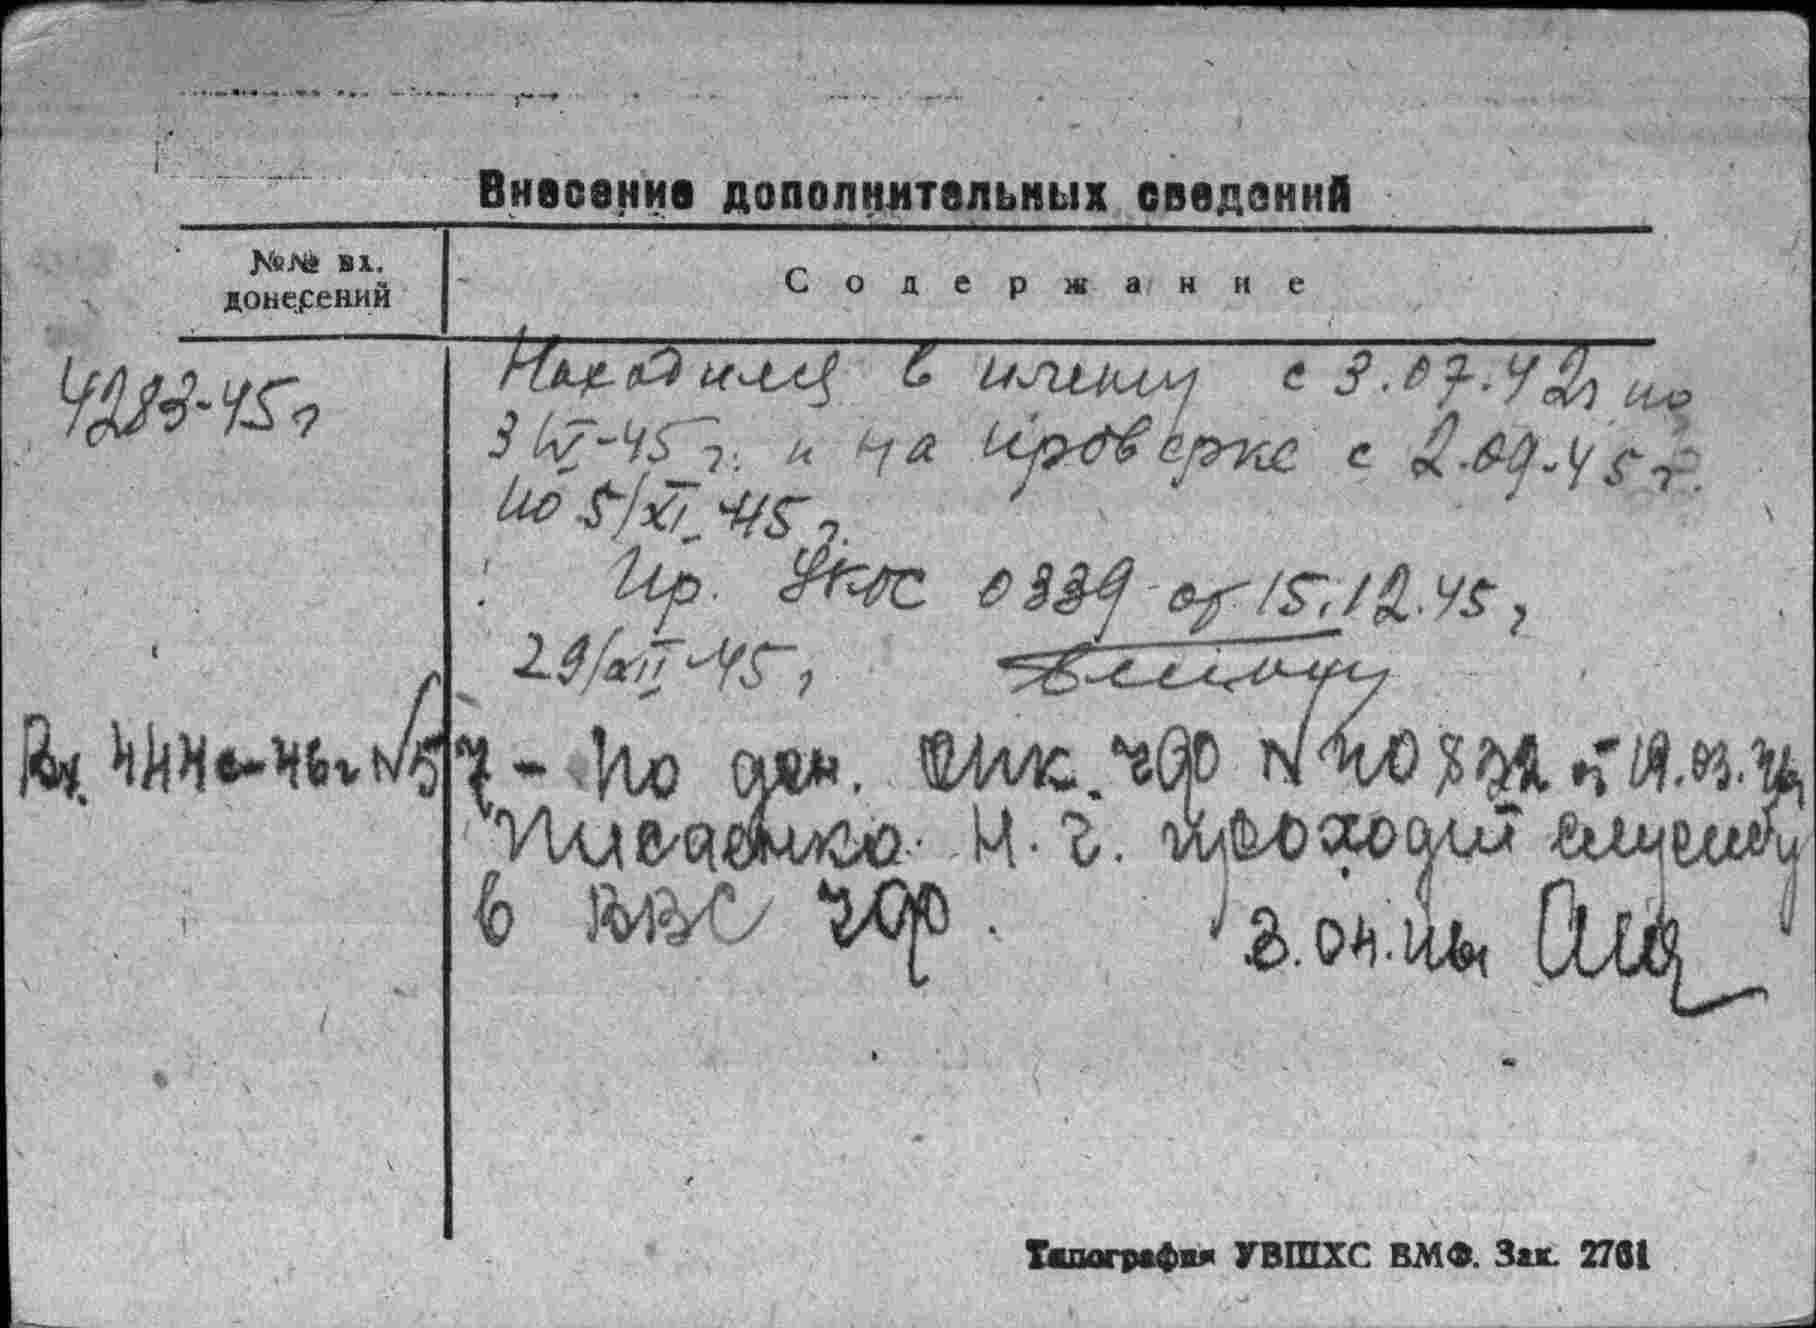 Внесение дополнительных сведений
№№ вх.
донесений
Содержание
4283-45г
Находился в плену с 3.07.42г по
3/IV-45г. и на проверке с 2.09.45г.
по 5/XI-45г.
Пр. 0339 от 15.12.45г
29/XII-45г
Вх. 444с-46г №57 - По дон. ОИК. ЧФ № от 19.03.46
Н. Г. проходит службу
в ВВС ЧФ.
3.04.46г
Типография УВШХС ВМФ. Зак. 2761